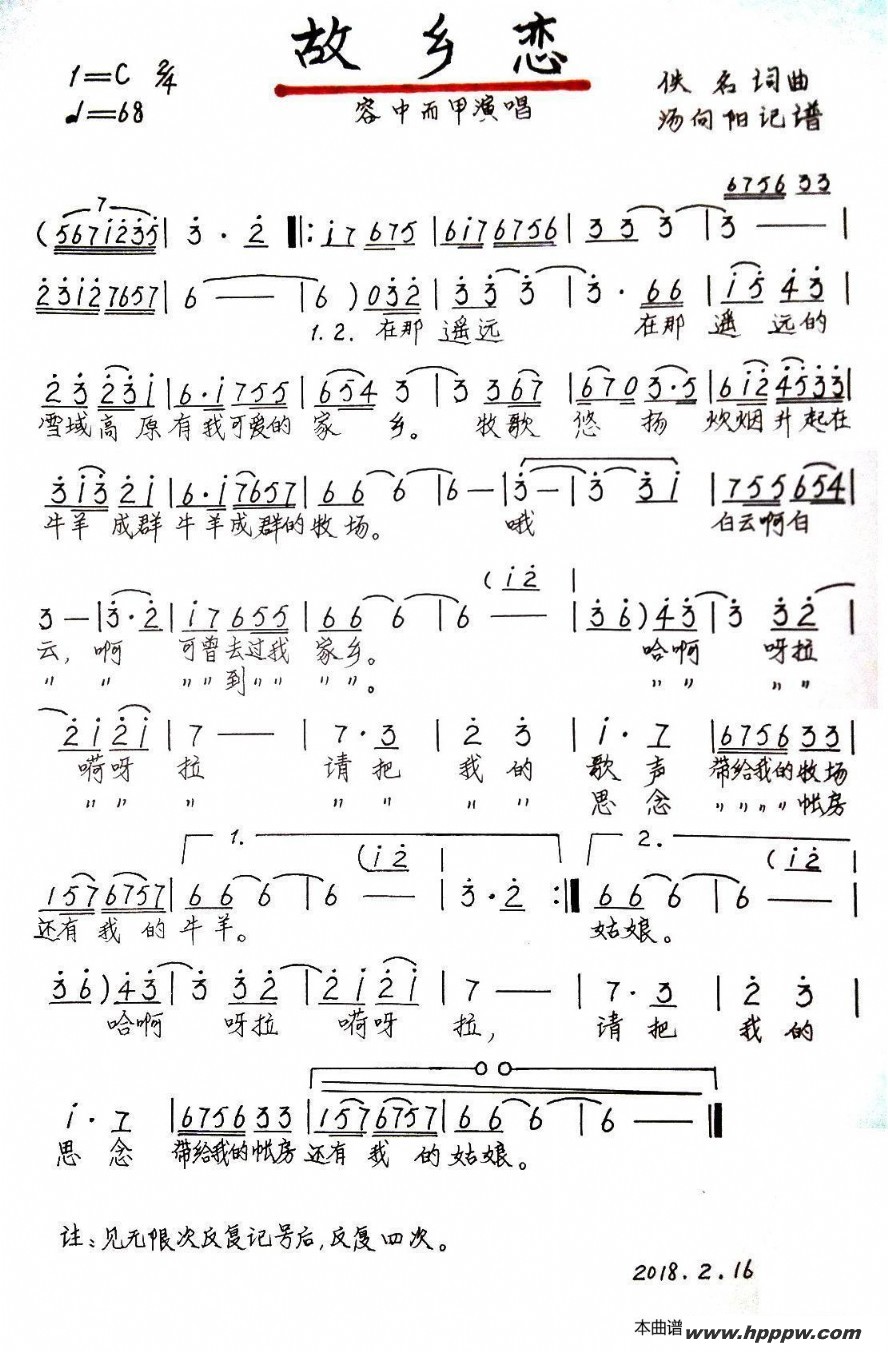 故乡恋
1=C 2/4
♩=68
容中而甲演唱
佚名词曲
汤向阳记谱
6756 33
(5671235 | 3·2 ‖: 17 675 | 617 6756 | 33 3 3 | 3 — — |
2312 7657 | 6 — — | 6 ) 032 | 33 3 3 | 3· 66 | 15 43 |
1.2. 在那 遥远 在那 遥 远的
23 231 | 6·1 755 | 654 3 | 3 367 | 670 3·5 | 612 4533 |
雪域高原有我可爱的家乡。牧歌悠扬 炊烟升起在
313 21 | 6·1 7657 | 66 6 | 6 — | 3 — | 3 31 | 755 654 |
牛羊成群牛羊成群的牧场。 哦 白云啊白
(12 |
3 — | 3·2 | 17 655 | 66 6 | 6 — — | 36) 43 | 3 32 |
云, 啊 可曾去过我 家乡。 哈啊 呀拉
〃 〃 〃〃到〃〃 〃〃。 〃〃 〃〃
21 21 | 7 — — | 7·3 | 2 3 | 1·7 | 6756 33 |
嗬呀 拉 请把 我的 歌声 带给我的牧场
〃〃 〃 〃 〃 〃 〃 思念 〃〃〃〃帐房
1. (12 2. (12
157 6757 | 66 6 | 6 — — | 3·2 :‖ 66 6 | 6 — — |
还有我的牛羊。 姑娘。
36) 43 | 3 32 | 21 21 | 7 — — | 7·3 | 2 3 |
哈啊 呀拉 嗬呀 拉, 请把 我的
1·7 | 6756 33 | 157 6757 | 66 6 | 6 — — ‖
思念 带给我的帐房还有我的姑娘。
注:见无限次反复记号后,反复四次。
2018.2.16
本曲谱 www.hpppw.com